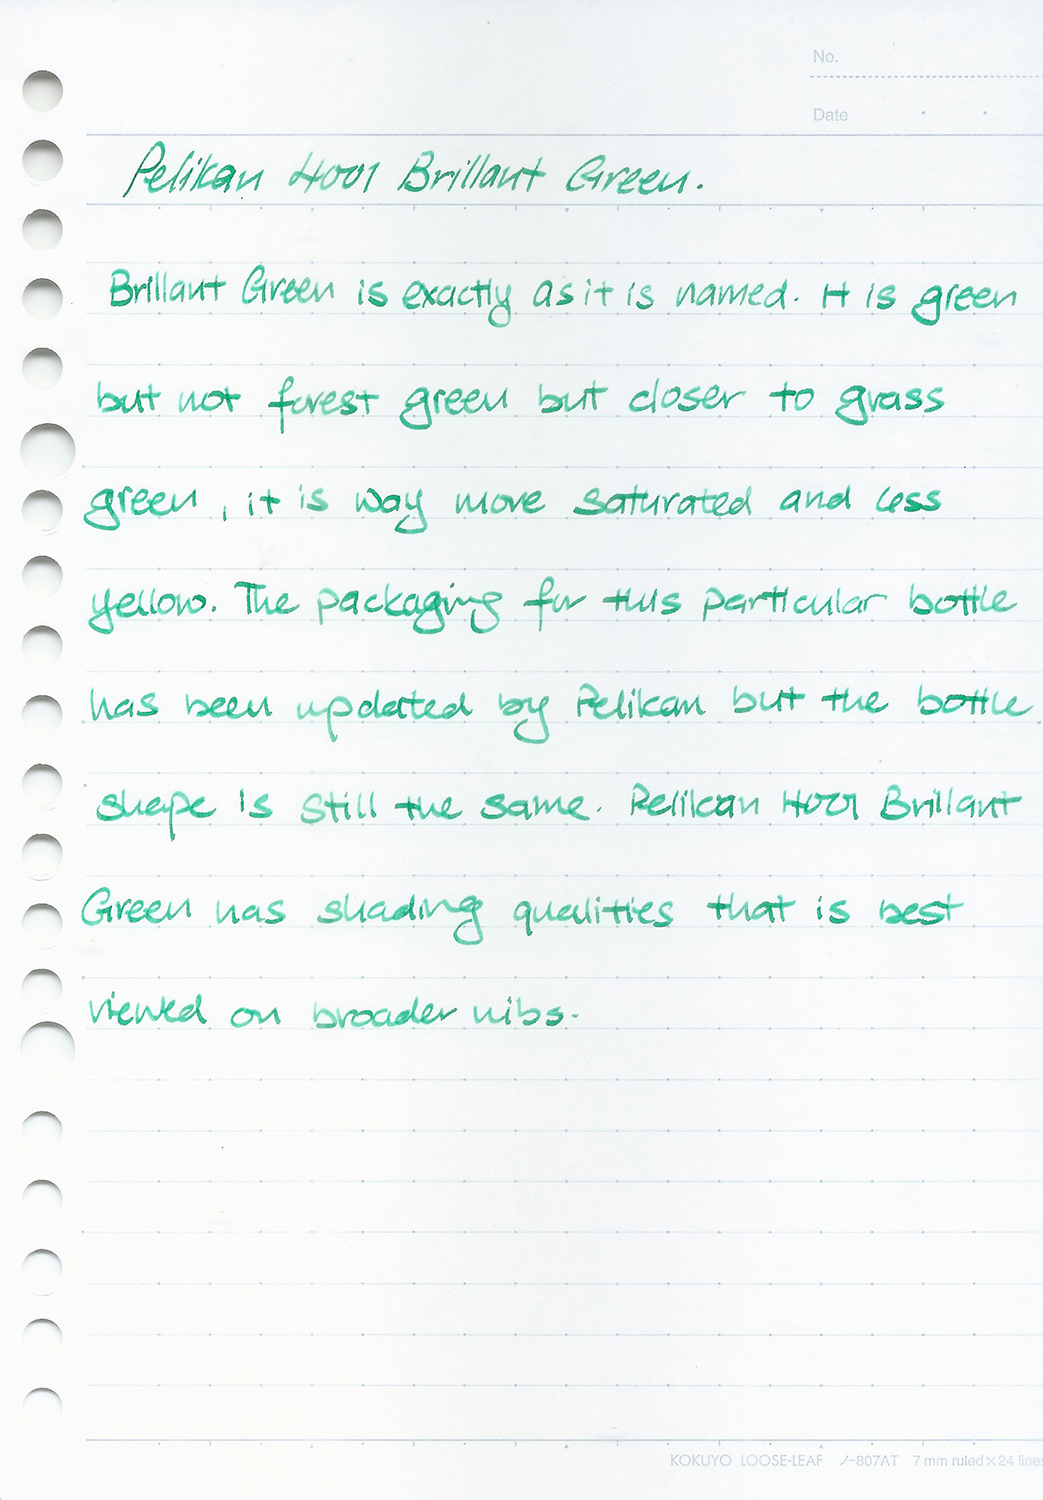 No.
Date
Pelikan 4001 Brillant Green.
Brillant Green is exactly as it is named. It is green
but not forest green but closer to grass
green, it is way more saturated and less
yellow. The packaging for this particular bottle
has been updated by Pelikan but the bottle
shape is still the same. Pelikan 4001 Brillant
Green has shading qualities that is best
viewed on broader nibs.
KOKUYO LOOSE-LEAF ノ-807AT 7 mm ruled×24 lines